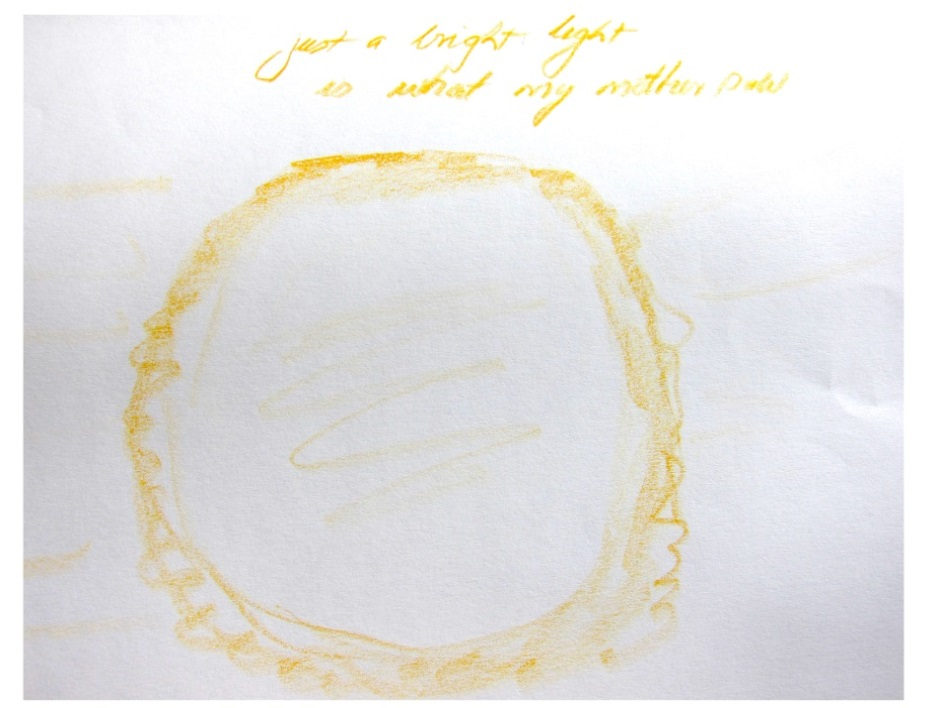 just a bright light
is what my mother saw